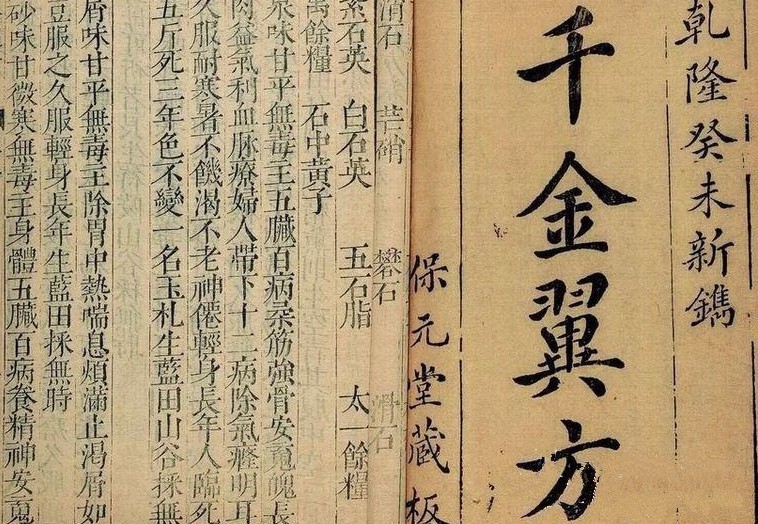 乾隆癸未新鐫
千金翼方
保元堂藏板
消石 芒硝 礬石 滑石
紫石英 白石英 五石脂 太一餘糧
禹餘糧 石中黃子
泉味甘平無毒主五臟百病柔筋強骨安䰟魄長
肉益氣利血脉療婦人帶下十二病除氣癃明耳
久服耐寒暑不饑渴不老神僊輕身長年人臨死
五斤死三年色不變一名玉札生藍田山谷採無
屑味甘平無毒主除胃中熱喘息煩滿止渴屑如
豆服之久服輕身長年生藍田採無時
砂味甘微寒無毒主身體五臟百病養精神安䰟